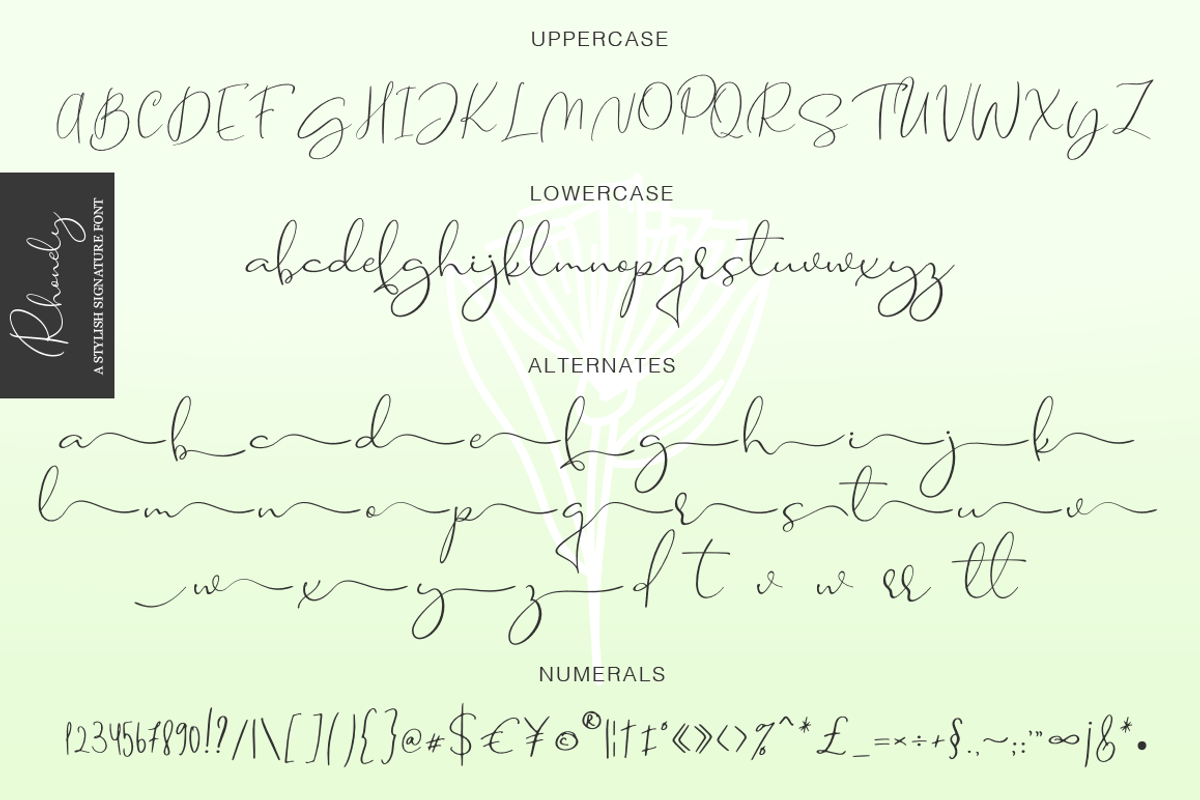 UPPERCASE
ABCDEFGHIJKLMNOPQRSTUVWXYZ
Rhonely
A STYLISH SIGNATURE FONT
LOWERCASE
abcdefghijklmnopqrstuvwxyz
ALTERNATES
a b c d e f g h i j k
l m n o p q r s t u v
w x y z d t v w rr tt
NUMERALS
1234567890!?/|\[](){}@#$€¥©®¦†‡°«»‹›%^*£_=×÷+§.,~;:'"∞j&*•